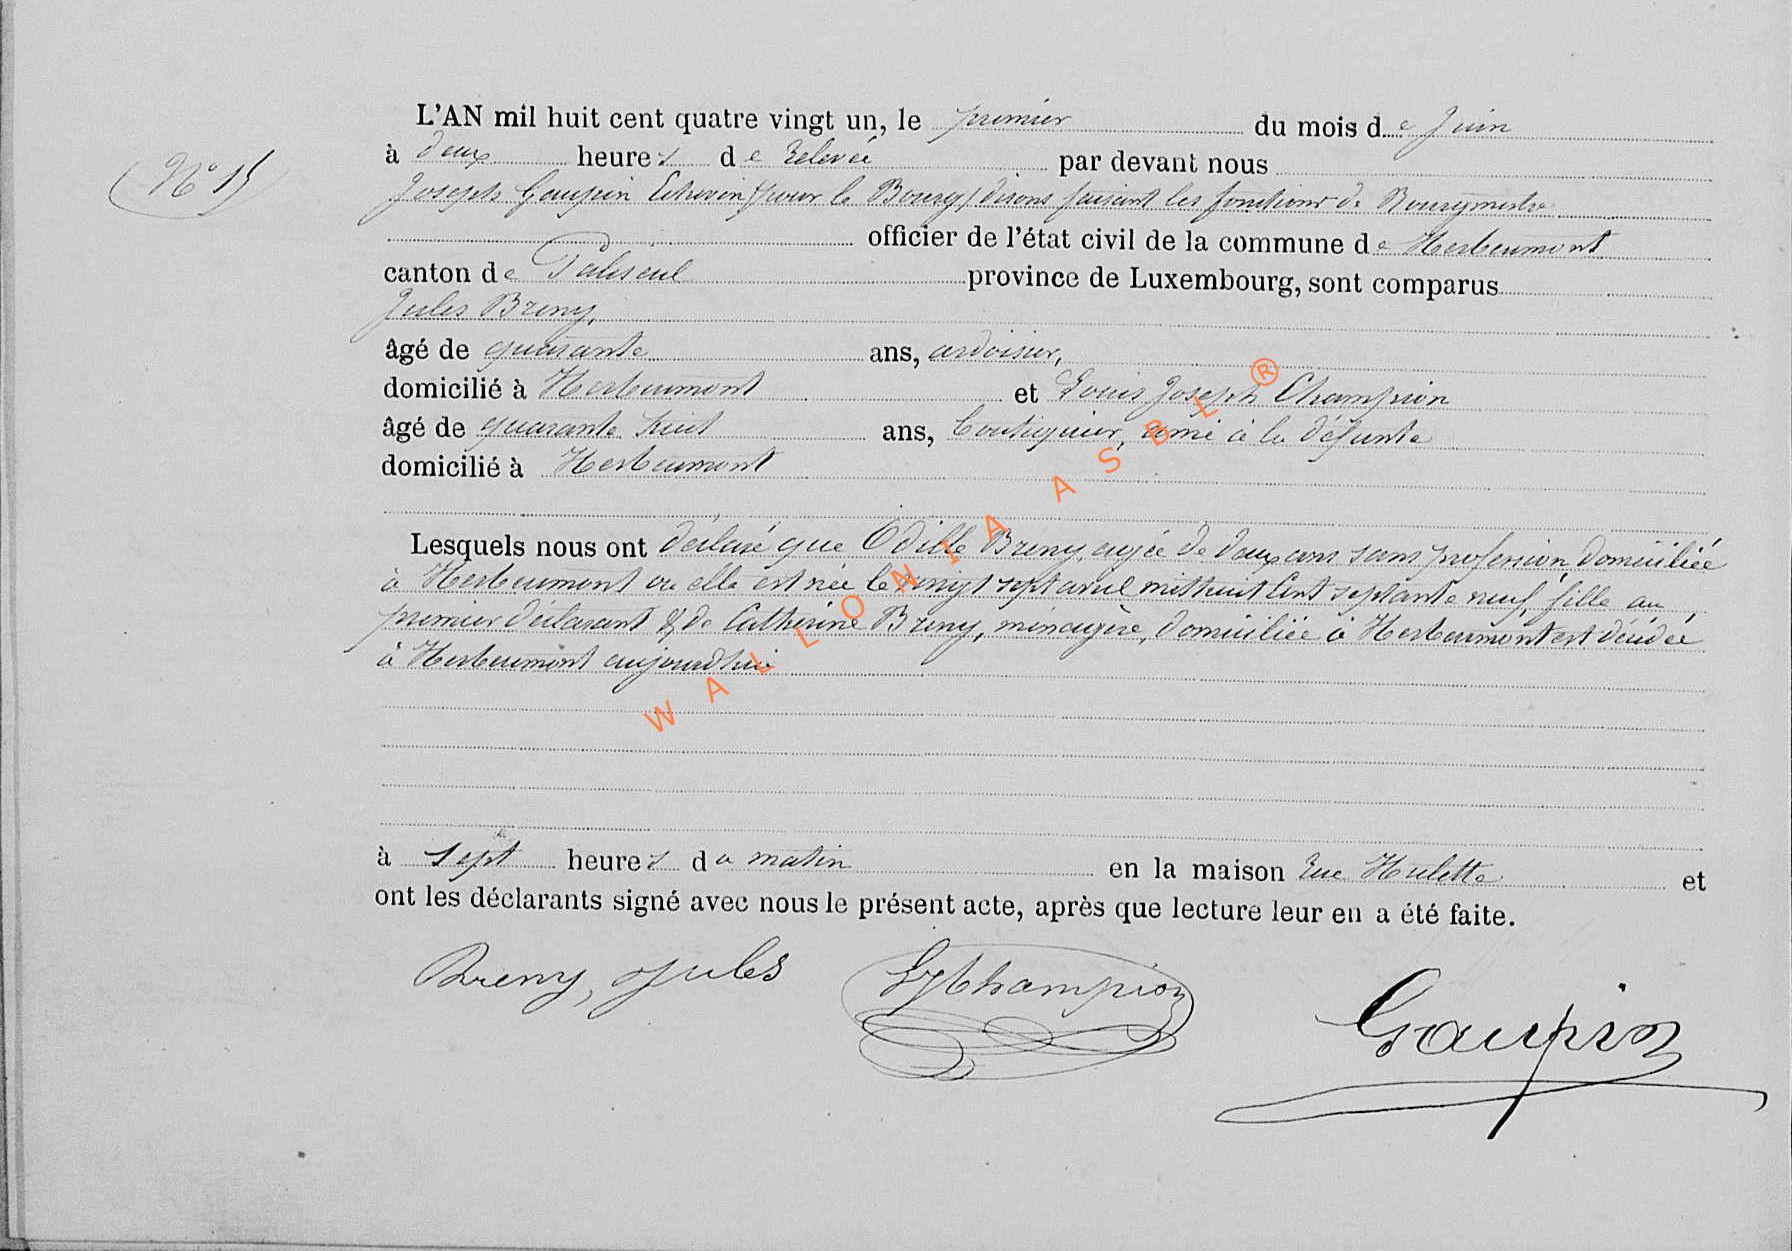 L'AN mil huit cent quatre vingt un, le premier du mois de Juin
(N° 15)
à deux heures de relevée par devant nous
Joseph Gaupin Echevin (pour le Bourg) disons faisant les fonctions de Bourgmestre
officier de l'état civil de la commune de Herbeumont
canton de Paliseul province de Luxembourg, sont comparus
Jules Breny,
âgé de quarante ans, ardoisier,
domicilié à Herbeumont et Louis Joseph Champion
âgé de quarante huit ans, Boutiquier, ami à la défunte
domicilié à Herbeumont
Lesquels nous ont déclaré que Odille Breny, agée de deux ans sans profession domiciliée
à Herbeumont ou elle est née le vingt sept avril mil huit Cent septante neuf, fille au
premier déclarant & de Catherine Breny, ménagère, domiciliée à Herbeumont est décédée
à Herbeumont aujourd'hui
à sept heures du matin en la maison rue Hulette et
ont les déclarants signé avec nous le présent acte, après que lecture leur en a été faite.
Breny, Jules LJChampion Gaupin
WALLONIA ASBL ®